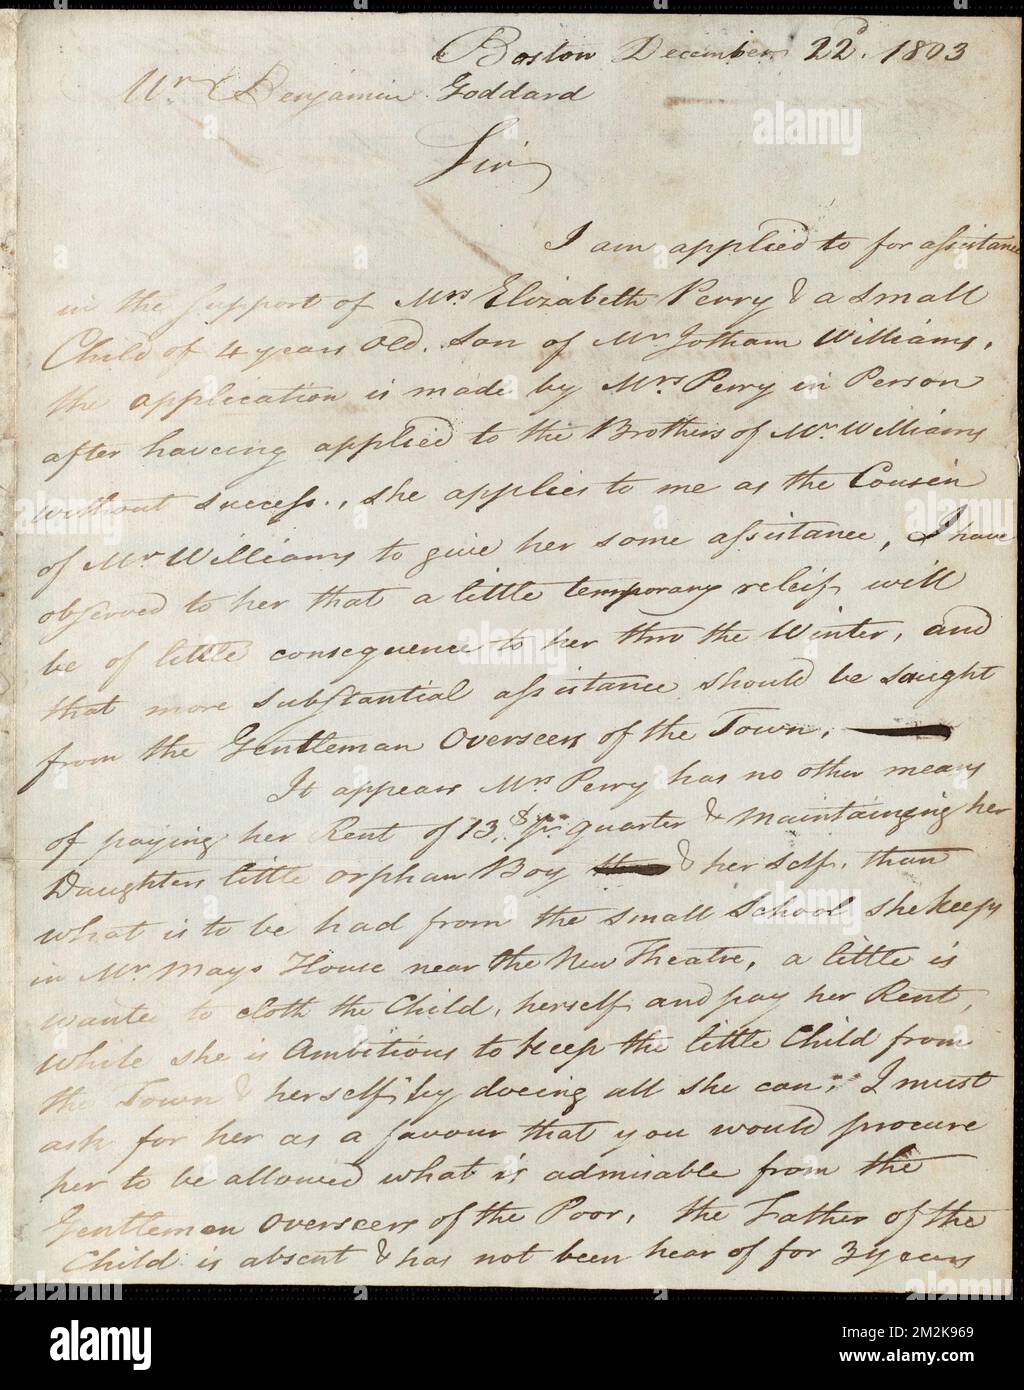 Boston December 22d. 1803
Mr Benjamin Goddard
Sir
I am applied to for assistance
in the support of Mrs Elizabeth Perry & a small
Child of 4 years Old. Son of Mr Jotham Williams,
the application is made by Mrs Perry in Person
after haveing applied to the Brothers of Mr. Williams
without success., she applies to me as the Cousin
of Mr Williams to give her some assistance, I have
observed to her that a little temporary releif will
be of little consequence to her thro the Winter, and
that more substantial assistance should be saught
from the Gentleman Overseers of the Town.
It appears Mrs Perry has no other means
of paying her Rent of 13.$ pr quarter & maintainging her
Daughters little orphan Boy & her self, than
what is to be had from the small school she keeps
in Mr. Mays House near the New Theatre, a little is
wante to cloth the Child, herself and pay her Rent,
while she is Ambitious to keep the little Child from
the Town & herself by doeing all she can, I must
ask for her as a favour that you would procure
her to be allowed what is admisable from the
Gentlemen Overseers of the Poor, the Father of the
Child is absent & has not been hear of for 3 years
alamy
alamy
Image ID: 2M2K969
www.alamy.com